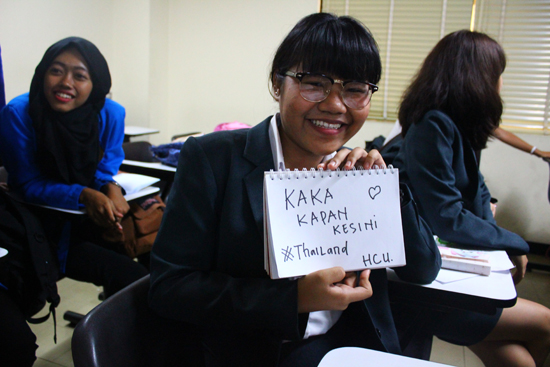 KAKA ♡
KAPAN
KESINI
#Thailand
HCU.